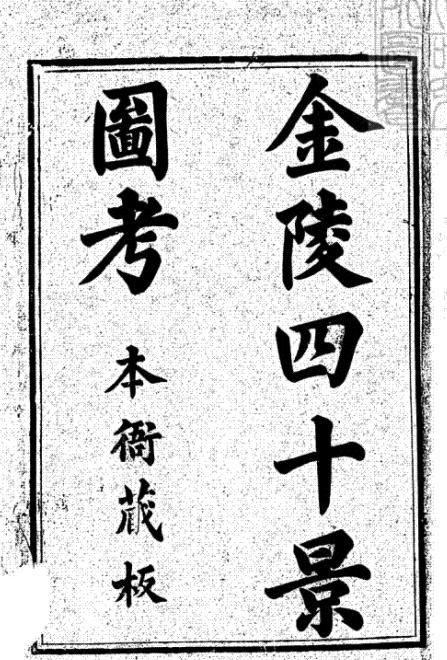 金陵四十景
圖考
本衙蔵板